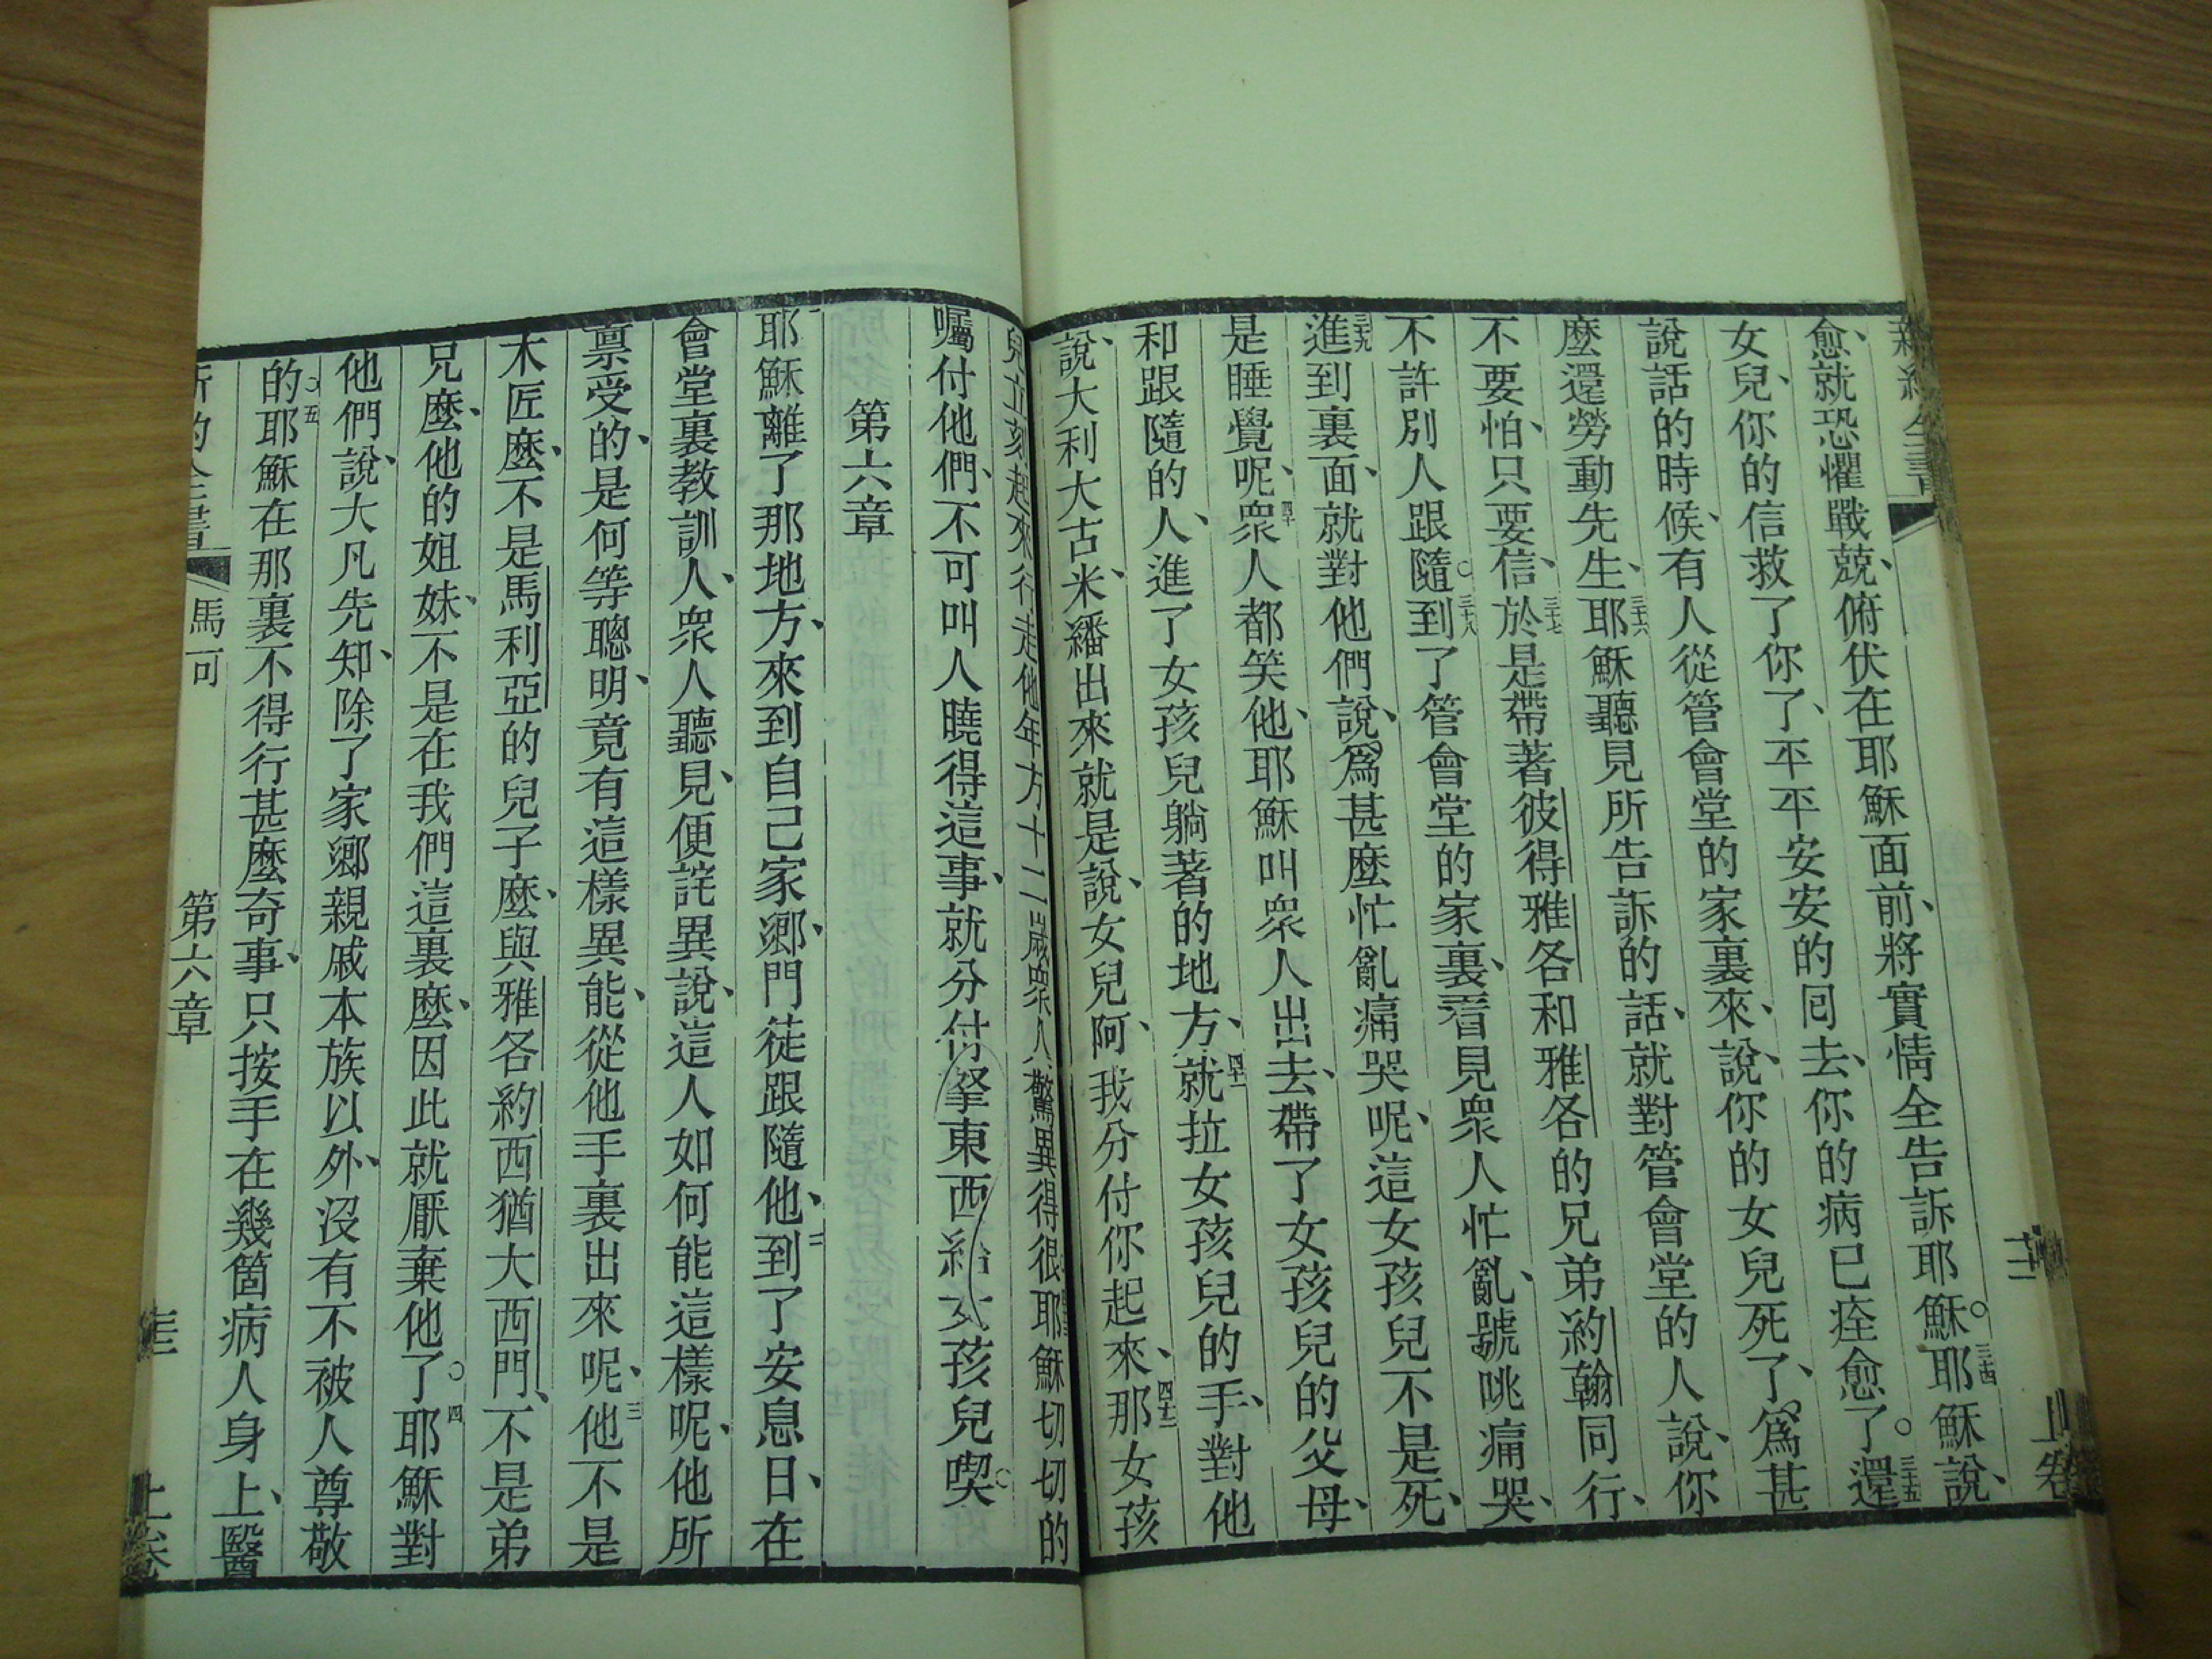 新約全書
十二
上卷
愈、就恐懼戰兢、俯伏在耶穌面前、將實情全告訴耶穌。三十四耶穌說、
女兒、你的信救了你了、平平安安的囘去、你的病已痊愈了。三十五還
說話的時候、有人從管會堂的家裏來、說、你的女兒死了、爲甚
麼還勞動先生、三十六耶穌聽見所告訴的話、就對管會堂的人說、你
不要怕、只要信、三十七於是帶著彼得雅各和雅各的兄弟約翰同行、
不許別人跟隨。三十八到了管會堂的家裏、看見衆人忙亂、號咷痛哭、
三十九進到裏面、就對他們說、爲甚麼忙亂痛哭呢、這女孩兒不是死、
是睡覺呢、四十衆人都笑他、耶穌叫衆人出去、帶了女孩兒的父母、
和跟隨的人、進了女孩兒躺著的地方、四十一就拉女孩兒的手、對他
說、大利大古米、繙出來就是說、女兒阿、我分付你起來、四十二那女孩
兒立刻起來行走他年方十二歲衆人驚異得很耶穌切切的
囑付他們、不可叫人曉得這事、就分付拏東西給女孩兒喫。
第六章
一耶穌離了那地方、來到自己家鄉、門徒跟隨他、二到了安息日、在
會堂裏教訓人、衆人聽見、便詫異說、這人如何能這樣呢、他所
禀受的、是何等聰明、竟有這樣異能、從他手裏出來呢、三他不是
木匠麼、不是馬利亞的兒子麼、與雅各約西猶大西門、不是弟
兄麼、他的姐妹、不是在我們這裏麼、因此就厭棄他了。四耶穌對
他們說、大凡先知、除了家鄉親戚本族以外、沒有不被人尊敬
的。五耶穌在那裏不得行甚麼奇事、只按手在幾箇病人身上、醫
新約全書
馬可
第六章
上卷